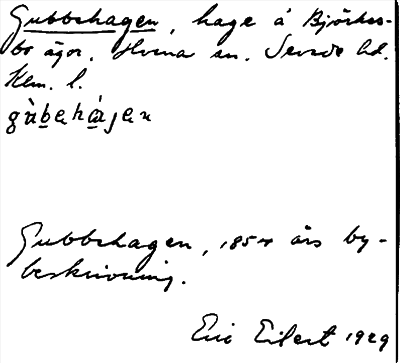 Gubbshagen, hage å Björkes-
bo ägor. Hvena sn. Sevede hd.
Klm. l.
gùbehàgen
Gubbshagen, 1854 års by-
beskrivning.
Eric Eilert 1929